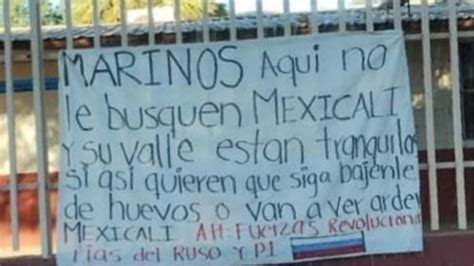 MARINOS Aqui no
le busquen MEXICALI
y su valle estan tranquilos
si asi quieren que siga bajenle
de huevos o van a ver arder
MEXICALI Att: Fuerzas Revoluciona
rias del RUSO y P1